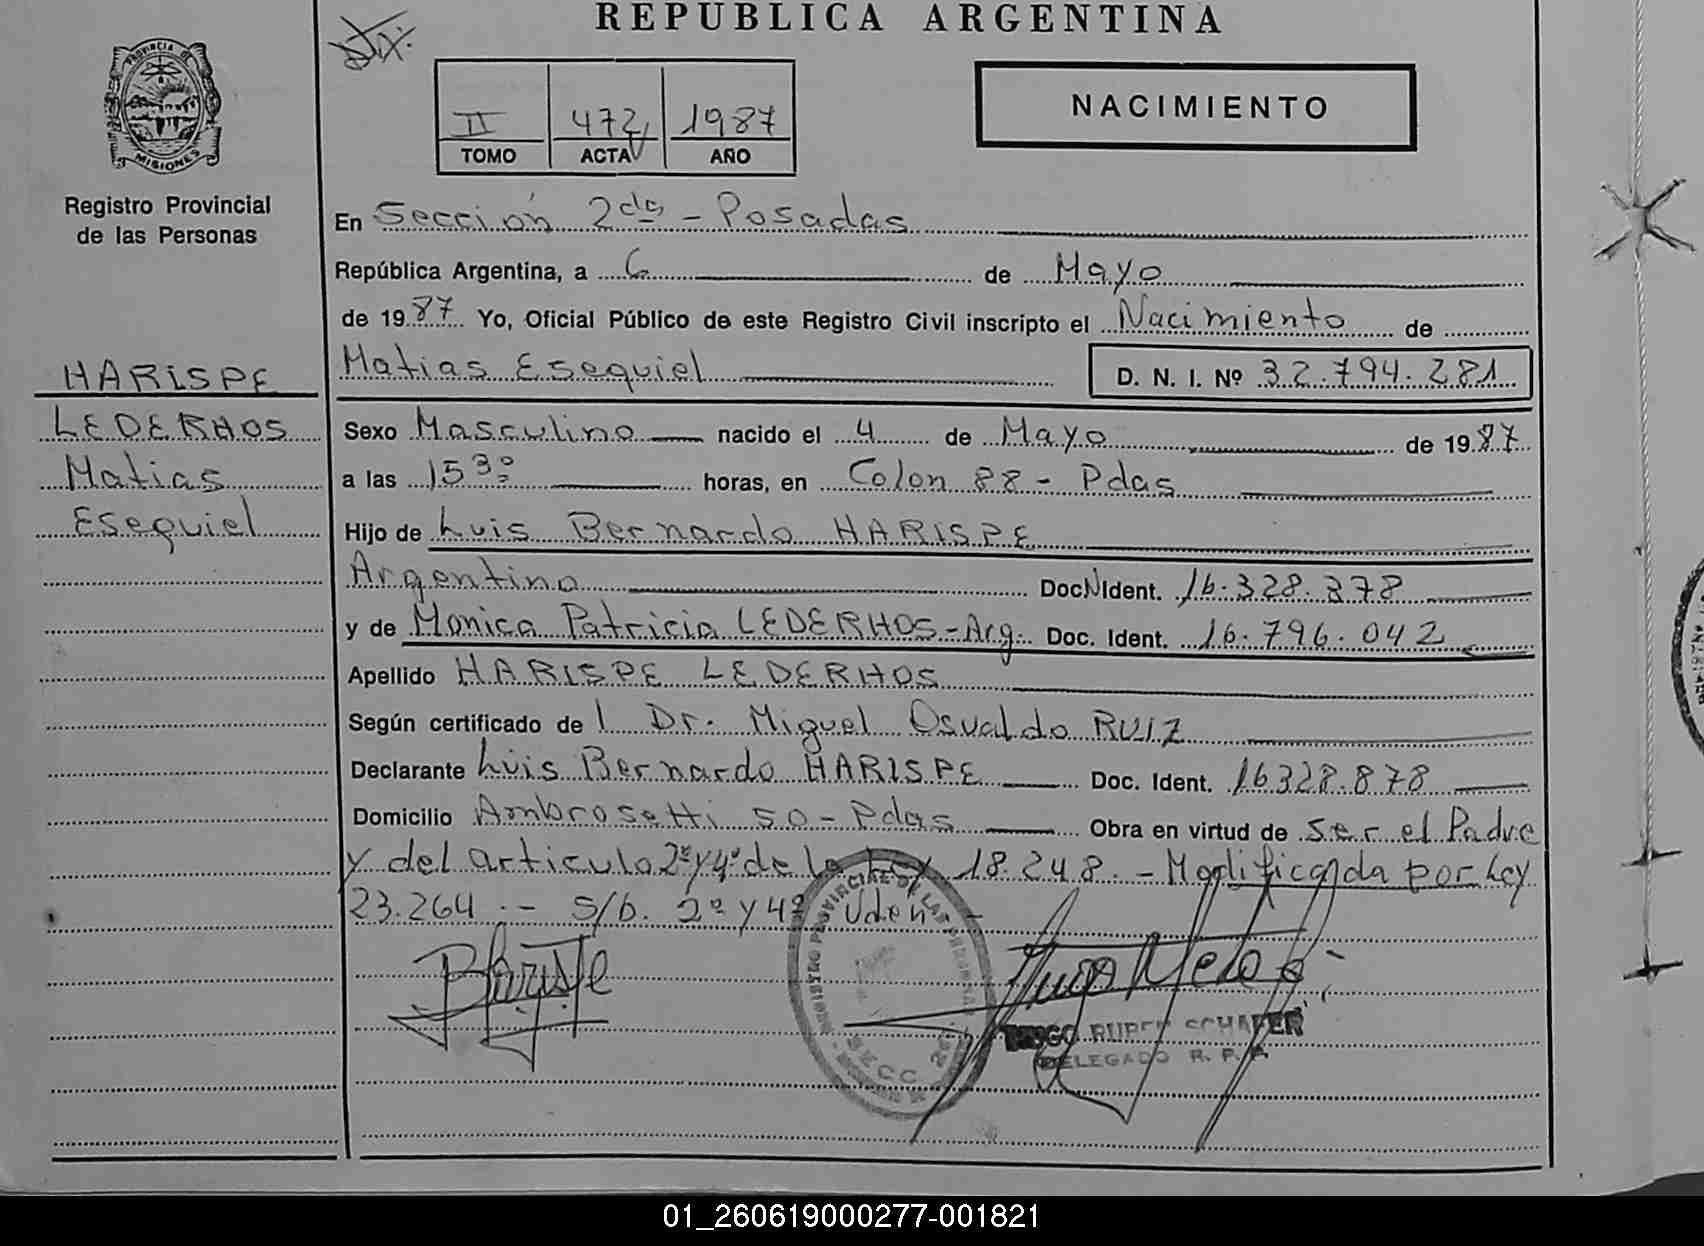 REPUBLICA ARGENTINA
PROVINCIA DE
MISIONES
Registro Provincial
de las Personas
II 472 1987
TOMO ACTA AÑO
NACIMIENTO
En Sección 2da - Posadas
República Argentina, a 6 de Mayo
de 1987 Yo, Oficial Público de este Registro Civil inscripto el Nacimiento de
Matias Esequiel D. N. I. Nº 32.794.281
HARISPE
LEDERHOS
Matias
Esequiel
Sexo Masculino nacido el 4 de Mayo de 1987
a las 15 30 horas, en Colon 88 - Pdas
Hijo de Luis Bernardo HARISPE
Argentino Doc. Ident. 16.328.378
y de Monica Patricia LEDERHOS - Arg. Doc. Ident. 16.796.042
Apellido HARISPE LEDERHOS
Según certificado de l Dr. Miguel Osvaldo RUIZ
Declarante Luis Bernardo HARISPE Doc. Ident. 16328.878
Domicilio Ambrosetti 50 - Pdas Obra en virtud de ser el Padre
y del articulo 2º y 4º de la Ley 18.248. - Modificada por Ley
23.264 .- S/b. 2º y 4º Vden -
REGISTRO PROVINCIAL DE LAS PERSONAS
SECC 2da
HUGO RUBEN SCHAFER
DELEGADO R. P. P.
01_260619000277-001821